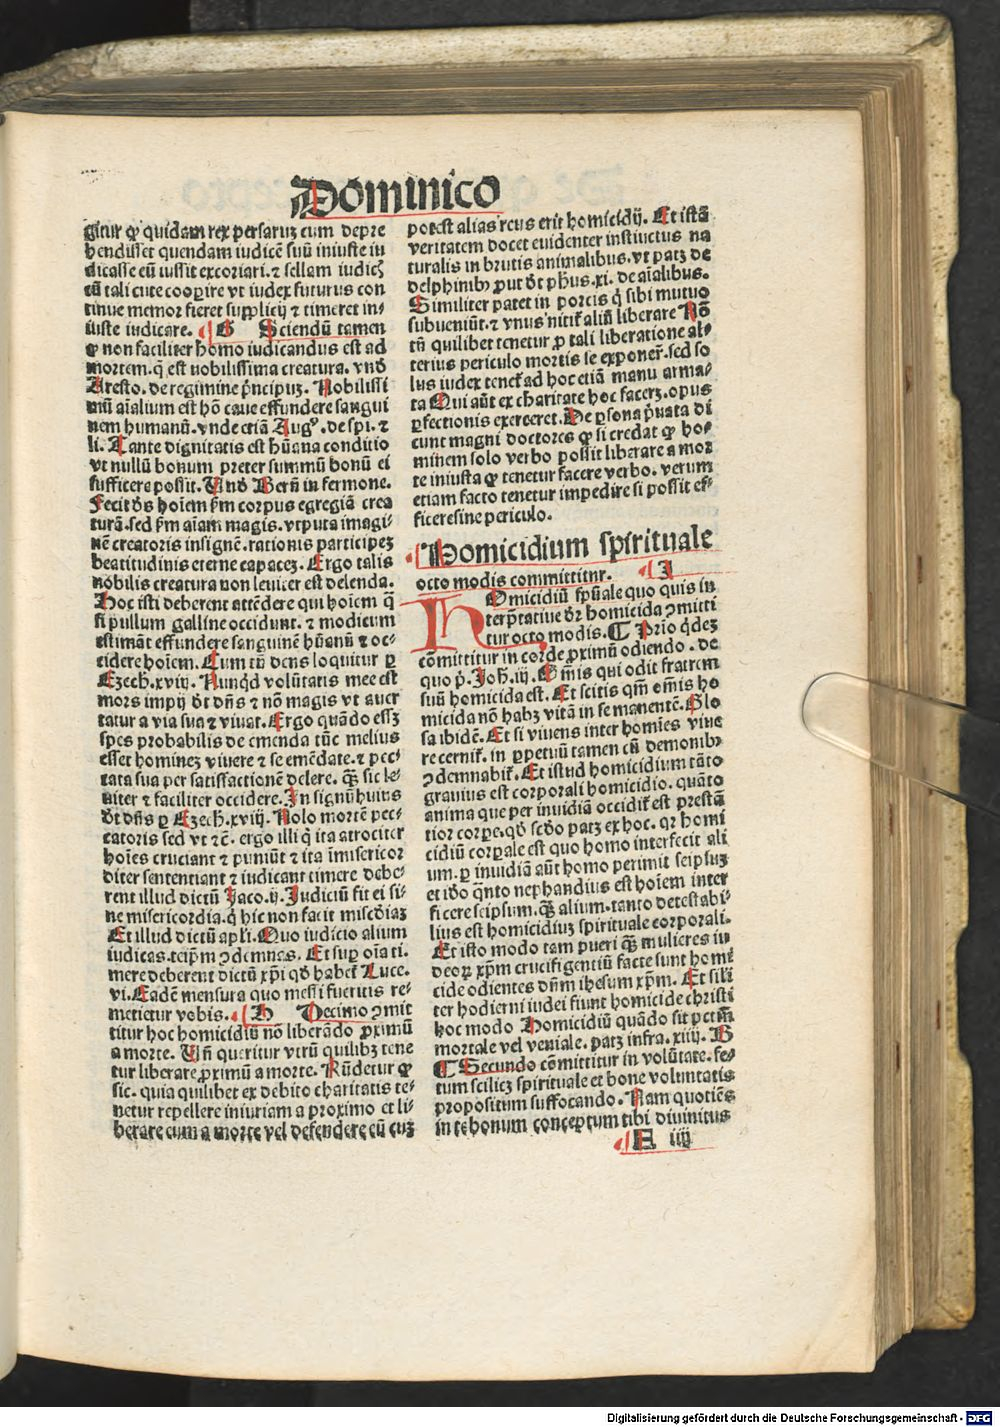 Dominico
gitur ꝙ quidam rex persaruꝫ cum depre
hendisset quendam iudicē suū iniuste iu
dicasse eū iussit excoriari. ⁊ sellam iudicꝭ
cū tali cute cooꝑire vt iudex futurus con
tinue memor fieret supplicij ⁊ timeret in⸗
iuste iudicare. G Sciendū tamen
ꝙ non faciliter homo iudicandus est ad
mortem. q̄ est nobilissima creatura. vnđ
Aresto. de regimine pͥncipuꝫ. Nobilissi
mū aīalium est hō caue effundere sangui
nem humanū. vnde etiā Augꝰ. de spi. ⁊
li. Tante dignitatis est hūana conditio
vt nullū bonum preter summū bonū ei
sufficere possit. Vnđ Bern̄ in sermone.
Fecit đs hoīem ẜm corpus egregiā crea
turā. sed ẜm aīam magis. vtputa imagi⸗
nē creatoris insignē. rationis participeꝫ
beatitudinis eterne capaceꝫ. Ergo talis
nobilis creatura non leuiter est delenda.
Hoc isti deberent attēdere qui hoīem q̄
si pullum galline occidunt. ⁊ modicum
estimāt effundere sanguinē hūanū ⁊ oc⸗
cidere hoīem. Cum tn̄ deus loquitur ꝑ
Ezech. xviij. Nunqđ volūtatis mee est
mors impij đt dn̄s ⁊ nō magis vt auer
tatur a via sua ⁊ viuat. Ergo quādo essꝫ
spes probabilis de emenda tūc melius
esset homineꝫ viuere ⁊ se emēdate. ⁊ pec⸗
cata sua per satisfactionē delere. ꝙ̄ sic le⸗
uiter ⁊ faciliter occidere. In signū huius
đt dn̄s ꝑ Ezech. xviij. Nolo mortē pec⸗
catoris sed vt ⁊c̄. ergo illi q̇ ita atrociter
hoīes cruciant ⁊ puniūt ⁊ ita īmisericor
diter sententiant ⁊ iudicant timere debe⸗
rent illud dictū Jaco. ij. Judiciū fit ei si⸗
ne misericordia. q̇ hic non facit misc̄diaꝫ
Et illud dictū apl̄i. Quo iudicio alium
iudicas. teip̄m ꝯdemnas. Et suꝑ oīa ti⸗
mere deberent dictū xp̄i qđ habet̄ Luce.
vi. Eadē mensura quo messi fueritis re⸗
metietur vobis. H Decimo ꝯmit
titur hoc homicidiū nō liberādo ꝓximū
a morte. Vn̄ queritur vtrū quilibꝫ tene
tur liberate ꝓximū a morte. Rn̄detur ꝙ
sic. quia quilibet ex debito charitatis te⸗
netur repellere iniuriam a proximo et li⸗
berare eum a morte vel defendere eū cuꝫ
potest alias reus erit homicidij. Et istā
veritatem docet euidenter instinctus na
turalis in brutis animalibus. vt patꝫ de
delphinibꝰ ꝓut đt ph̄us. xi. de aīalibus.
Similiter patet in porcis q̇ sibi mutuo
subueniūt. ⁊ vnus nitit̄ aliū liberare Nō
tn̄ quilibet tenetur ꝓ tali liberatione al⸗
terius periculo mortis se exponere. sed so
lus iudex tenet̄ ad hoc etiā manu arma⸗
ta Qui aūt ex charitate hoc faceret. opus
ꝑfectionis exerceret. De ꝑsona pͥuata di
cunt magni doctores ꝙ si credat ꝙ ho⸗
minem solo verbo possit liberare a mor
te iniusta ꝙ tenetur facere verbo. verum
etiam facto tenetur impedire si possit ef⸗
ficere sine periculo.
Homicidium spirituale
octo modis committitur. J
HOmicidiū sp̄uale quo quis in
terp̄tatiue đr homicida ꝯmitti
tur octo modis. Prīo q̇deꝫ
cōmittitur in corde ꝓximū odiendo. de
quo pͥ. Joh̄. iij. Om̄is qui odit fratrem
suū homicida est. Et scitis qm̄ om̄is ho
micida nō habꝫ vitā in se manentē. Glo
sa ibidē. Et si viuens inter homīes viue
re cernit̄. in ꝑpetuū tamen cū demonibꝰ
ꝯdemnabit̄. Et istud homicidium tāto
grauius est corporali homicidio. quāto
anima que per inuidiā occidit̄ est prestā
tior corꝑe. qđ scđo patꝫ ex hoc. qꝛ homi
cidiū corꝑale est quo homo interfecit ali
um. ꝑ inuidiā aūt homo perimit seipsuꝫ
et iđo q̄nto nephandius est hoīem inter
ficere seipsum. ꝙ̄ alium. tanto detestabi⸗
lius est homicidiuꝫ spirituale corporali.
Et isto modo tam pueri ꝙ̄ mulieres iu
deoꝝ xp̄m crucifigentiū facte sunt homi
cide odientes dn̄m ihesum xp̄m. Et sili
ter hodierni iudei fiunt homicide christi
hoc modo Homicidiū quādo sit pctm̄
mortale vel veniale. patꝫ infra. xiiij. B
Secundo cōmittitur in volūtate. fe⸗
tum scilicꝫ spirituale et bone voluntatis
propositum suffocando. Nam quotiēs
in te bonum conceptum tibi diuinitus
E iiij
Digitalisierung gefördert durch die Deutsche Forschungsgemeinschaft - DFG